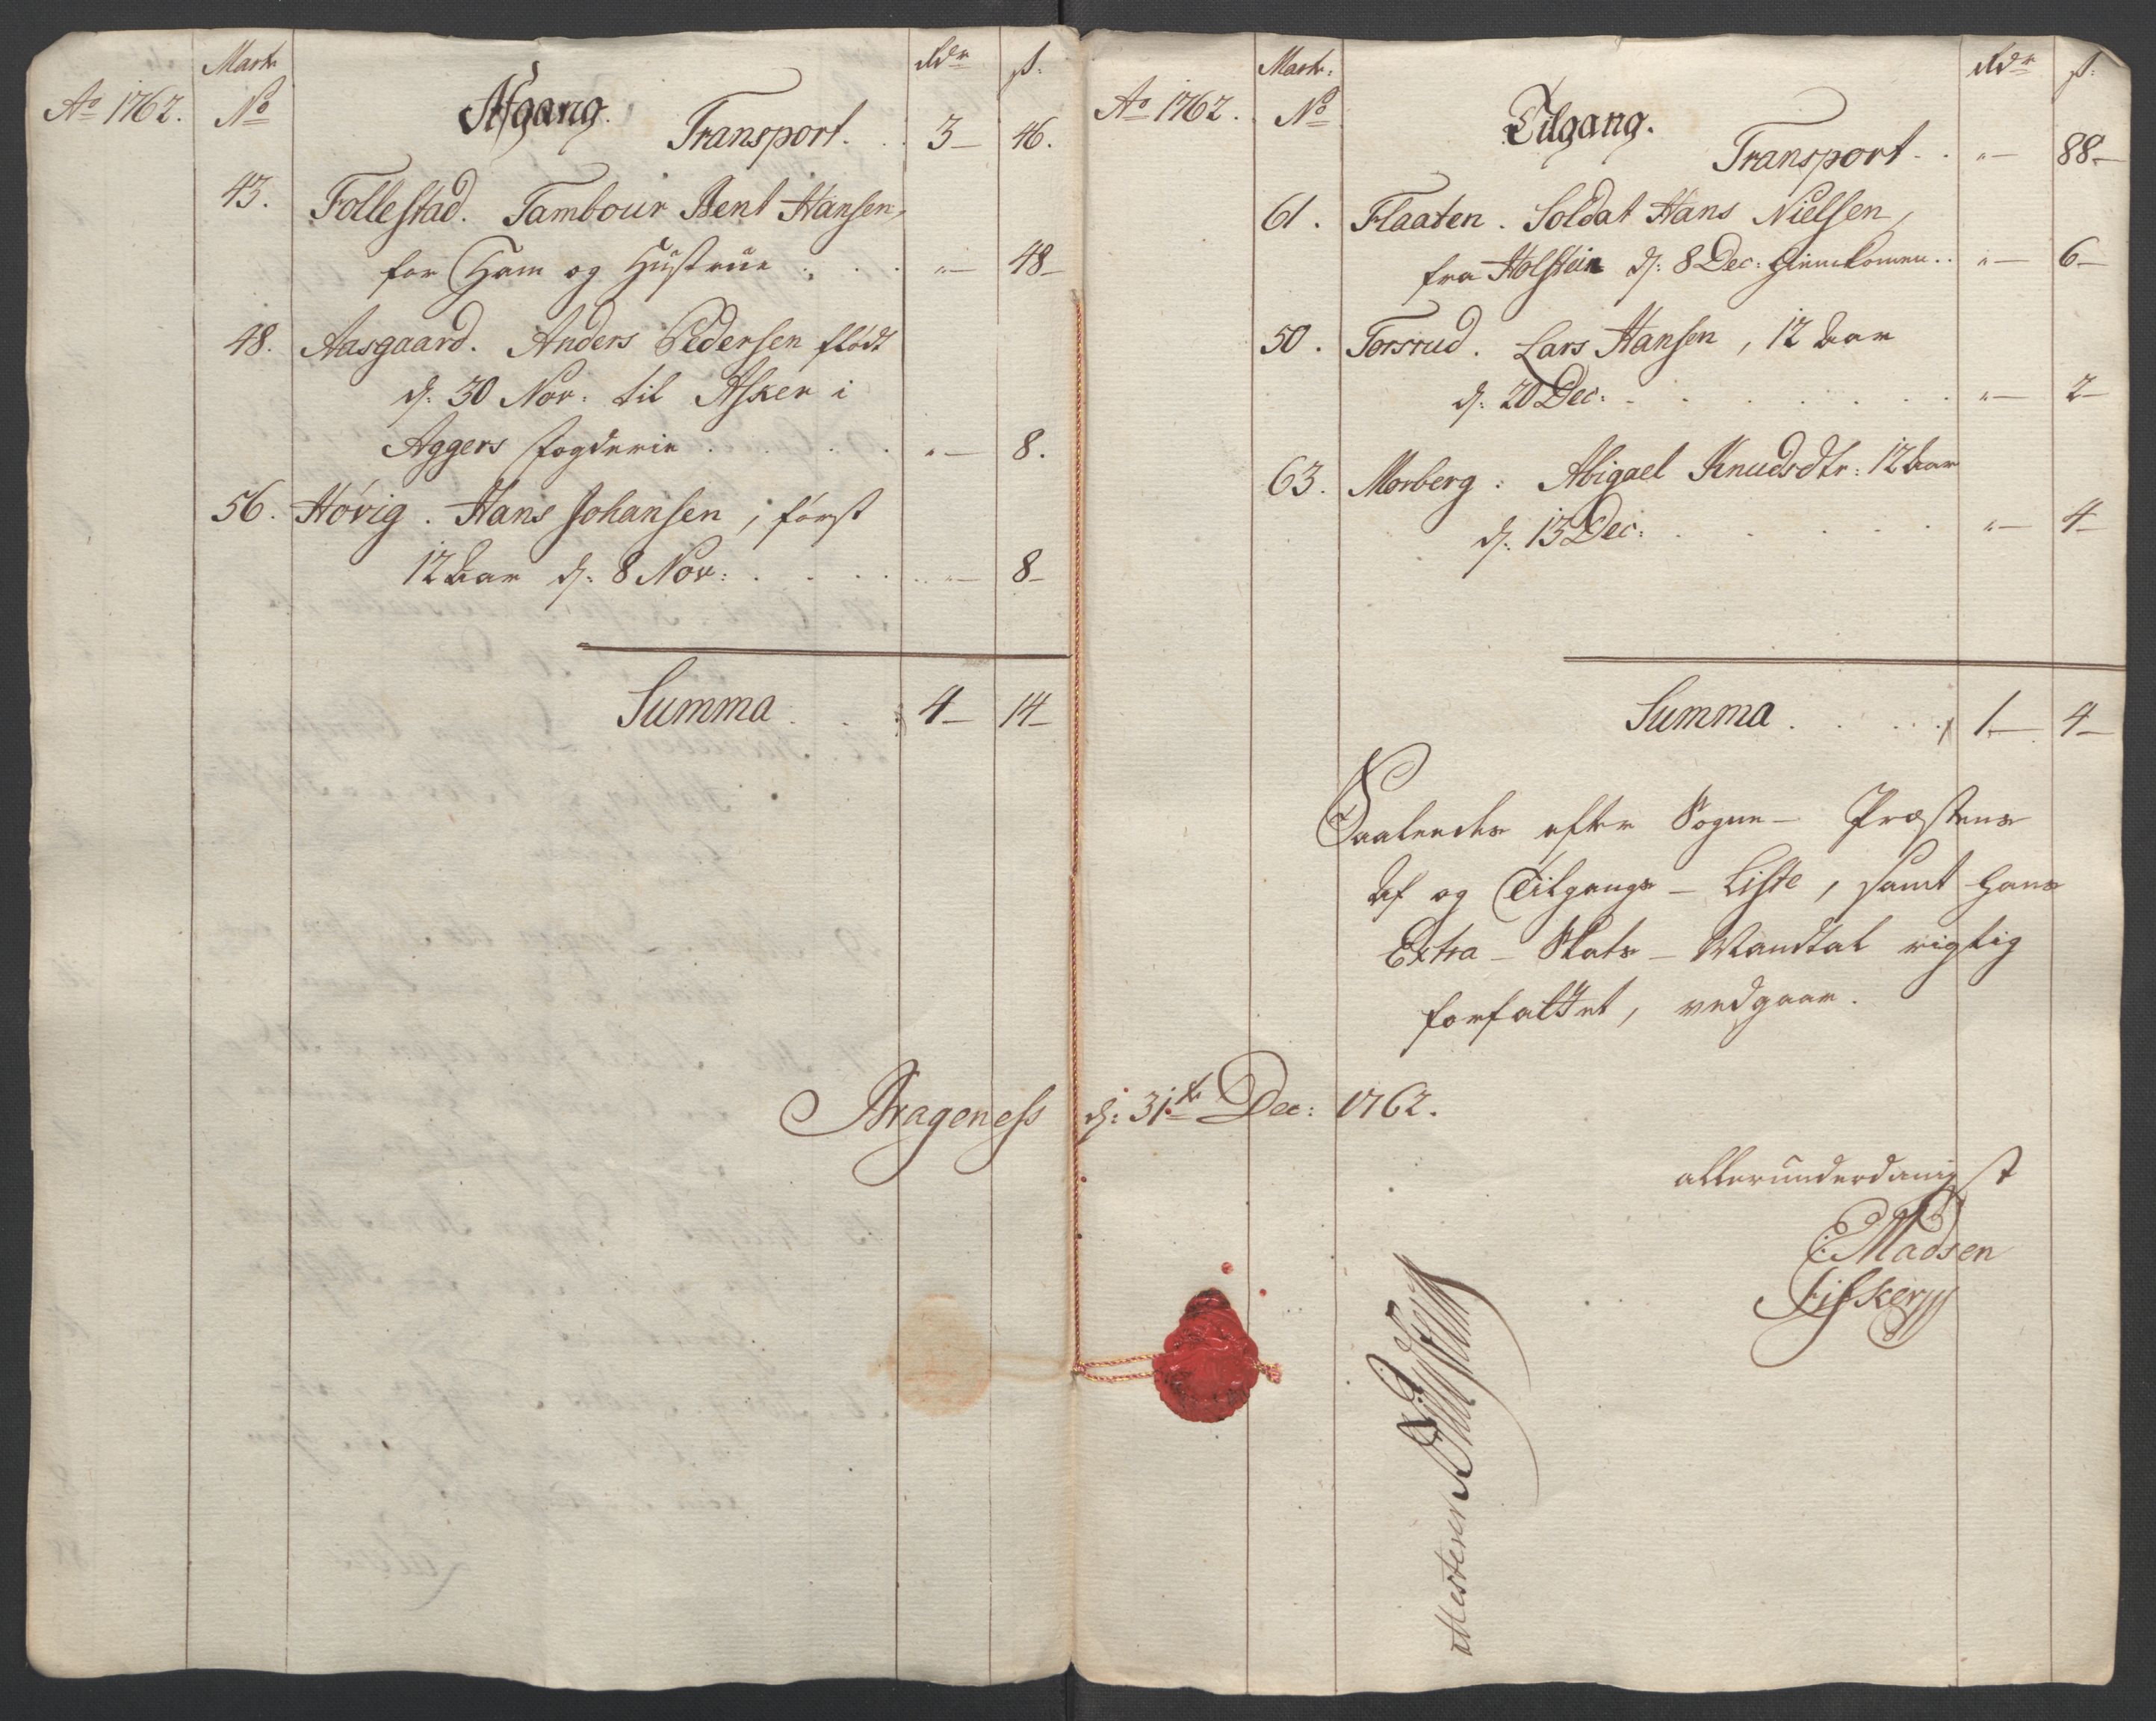 Ao 1762.
Matr. No
Afgang.
Rdr
s:
Transport . . 3 – 46.
43. Follestad. Tambour Bent Hansen,
for Ham og Hustrue . . . „ – 48 –
48. Aasgaard. Anders Pedersen flødt
d: 30 Nov: til Asker i
Aggers Fogderie . . . . „ – 8.
56. Høvig. Hans Johansen, først
12 Aar d: 8 Nov: . . . . „ – 8 –
Summa . . . 4 – 14 –
Ao 1762.
Matr: No
Tilgang.
Rdr
s:
Transport . . „ – 88 –
61. Flaaten. Soldat Hans Nielsen,
fra Holstein d: 8 Dec: hiemkomen . . „ – 6 –
50. Torsrud. Lars Hansen, 12 Aar
d: 20 Dec: . . . . . . „ – 2 –
63. Morberg. Abigael Knudsdtr: 12 Aar
d: 13 Dec: . . . . . „ – 4 –
Summa . . . . 1 – 4 –
Saaledes efter Sogne – Præstens
Af og Tilgangs – Liste, samt hans
Extra – Skats – Mandtal rigtig
forfattet, vedgaar.
Brageness d: 31te Dec: 1762.
allerunderdanigst
C: Madsen
Fisker
Attesterer